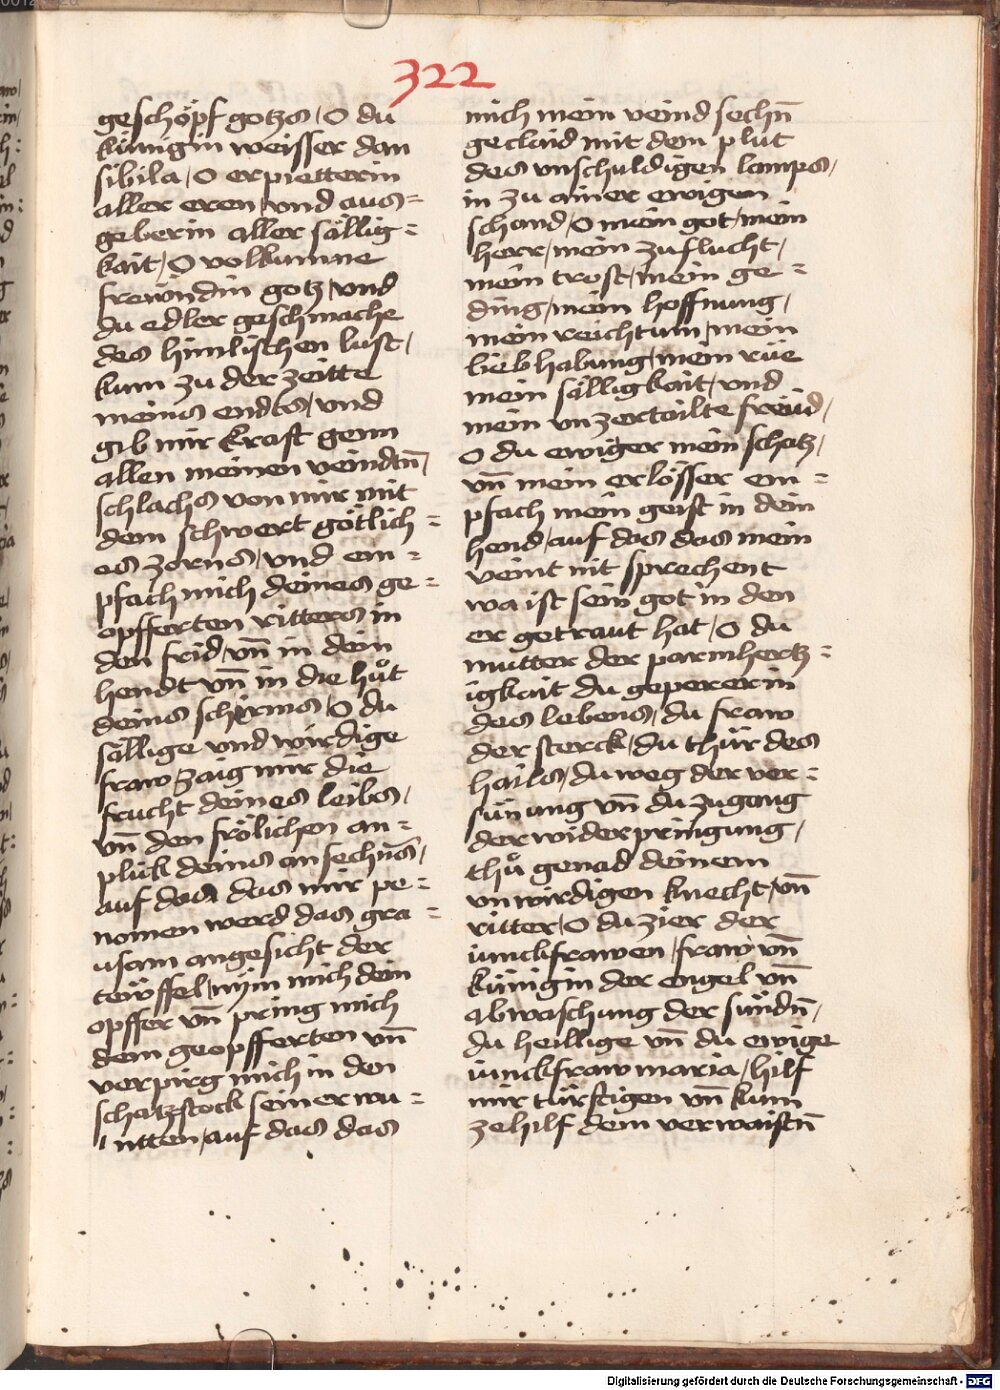 322
geschöpf gotzs / O du
künigin weisser dan
sibila / O erpietterin
aller eren / vnd aus=
geberin aller sällig=
kait / O volkumne
frewndin gotz / vnd
du edler geschmache
des himlischen lust /
kum zu der zeitte
meins endts / vnd
gib mir krafft genn
allen meinen veindn̄ /
schlachs von mir mit
dem schwert götlich=
es zorns / vnd em=
pfach mich deines ge=
opfferten ritters in
den frid / vn̄ in dein
hendt vn̄ in die hůt
deins schirms / O du
sällige vnd wirdige
fraw zaig mir die
frucht deines leibs /
vn̄ den frölichen an=
plück deins ansechn̄s /
auf das das mir pe=
nomen werd das gra=
usam angesicht der
tewffel / nym mich dein
opffer vn̄ pring mich
dem geopfferten vn̄
verpirg mich in den
schatzstock seiner wu=
ntten / auf das das
mich mein veind sechn̄
geclaid mit dem plut
des vnschuldigen lamps /
in zu ainer ewigen
schand / O mein got / mein
herr / mein zuflucht /
mein trost / mein ge=
ding / mein hoffnung /
mein reichtum / mein
liebhabung / mein rüe
mein sälligkait / vnd
mein vnzertailte freüd /
O du ewiger mein schatz /
vn̄ mein erlösser em=
pfach mein geist in dein
hend / auf das das mein
veint nit sprechent
wa ist sein got in den
er getraut hat / O du
mutter der parmhertz=
igkait du gepererin
des lebens / du fraw
der sterck / du thür des
hails / du weg der ver=
sünung vn̄ du zugang
der widerpringung /
thů genad deinem
vnwirdigen knecht / vn̄
ritter / O du zier der
iunckfrawen / fraw vn̄
künigin der engel vn̄
abwaschung der sündn̄ /
du heillige vn̄ du ewige
iunckfraw maria / hilf
mir türfftigen vn̄ kum
ze hilf dem verwaistn̄
Digitalisierung gefördert durch die Deutsche Forschungsgemeinschaft - DFG